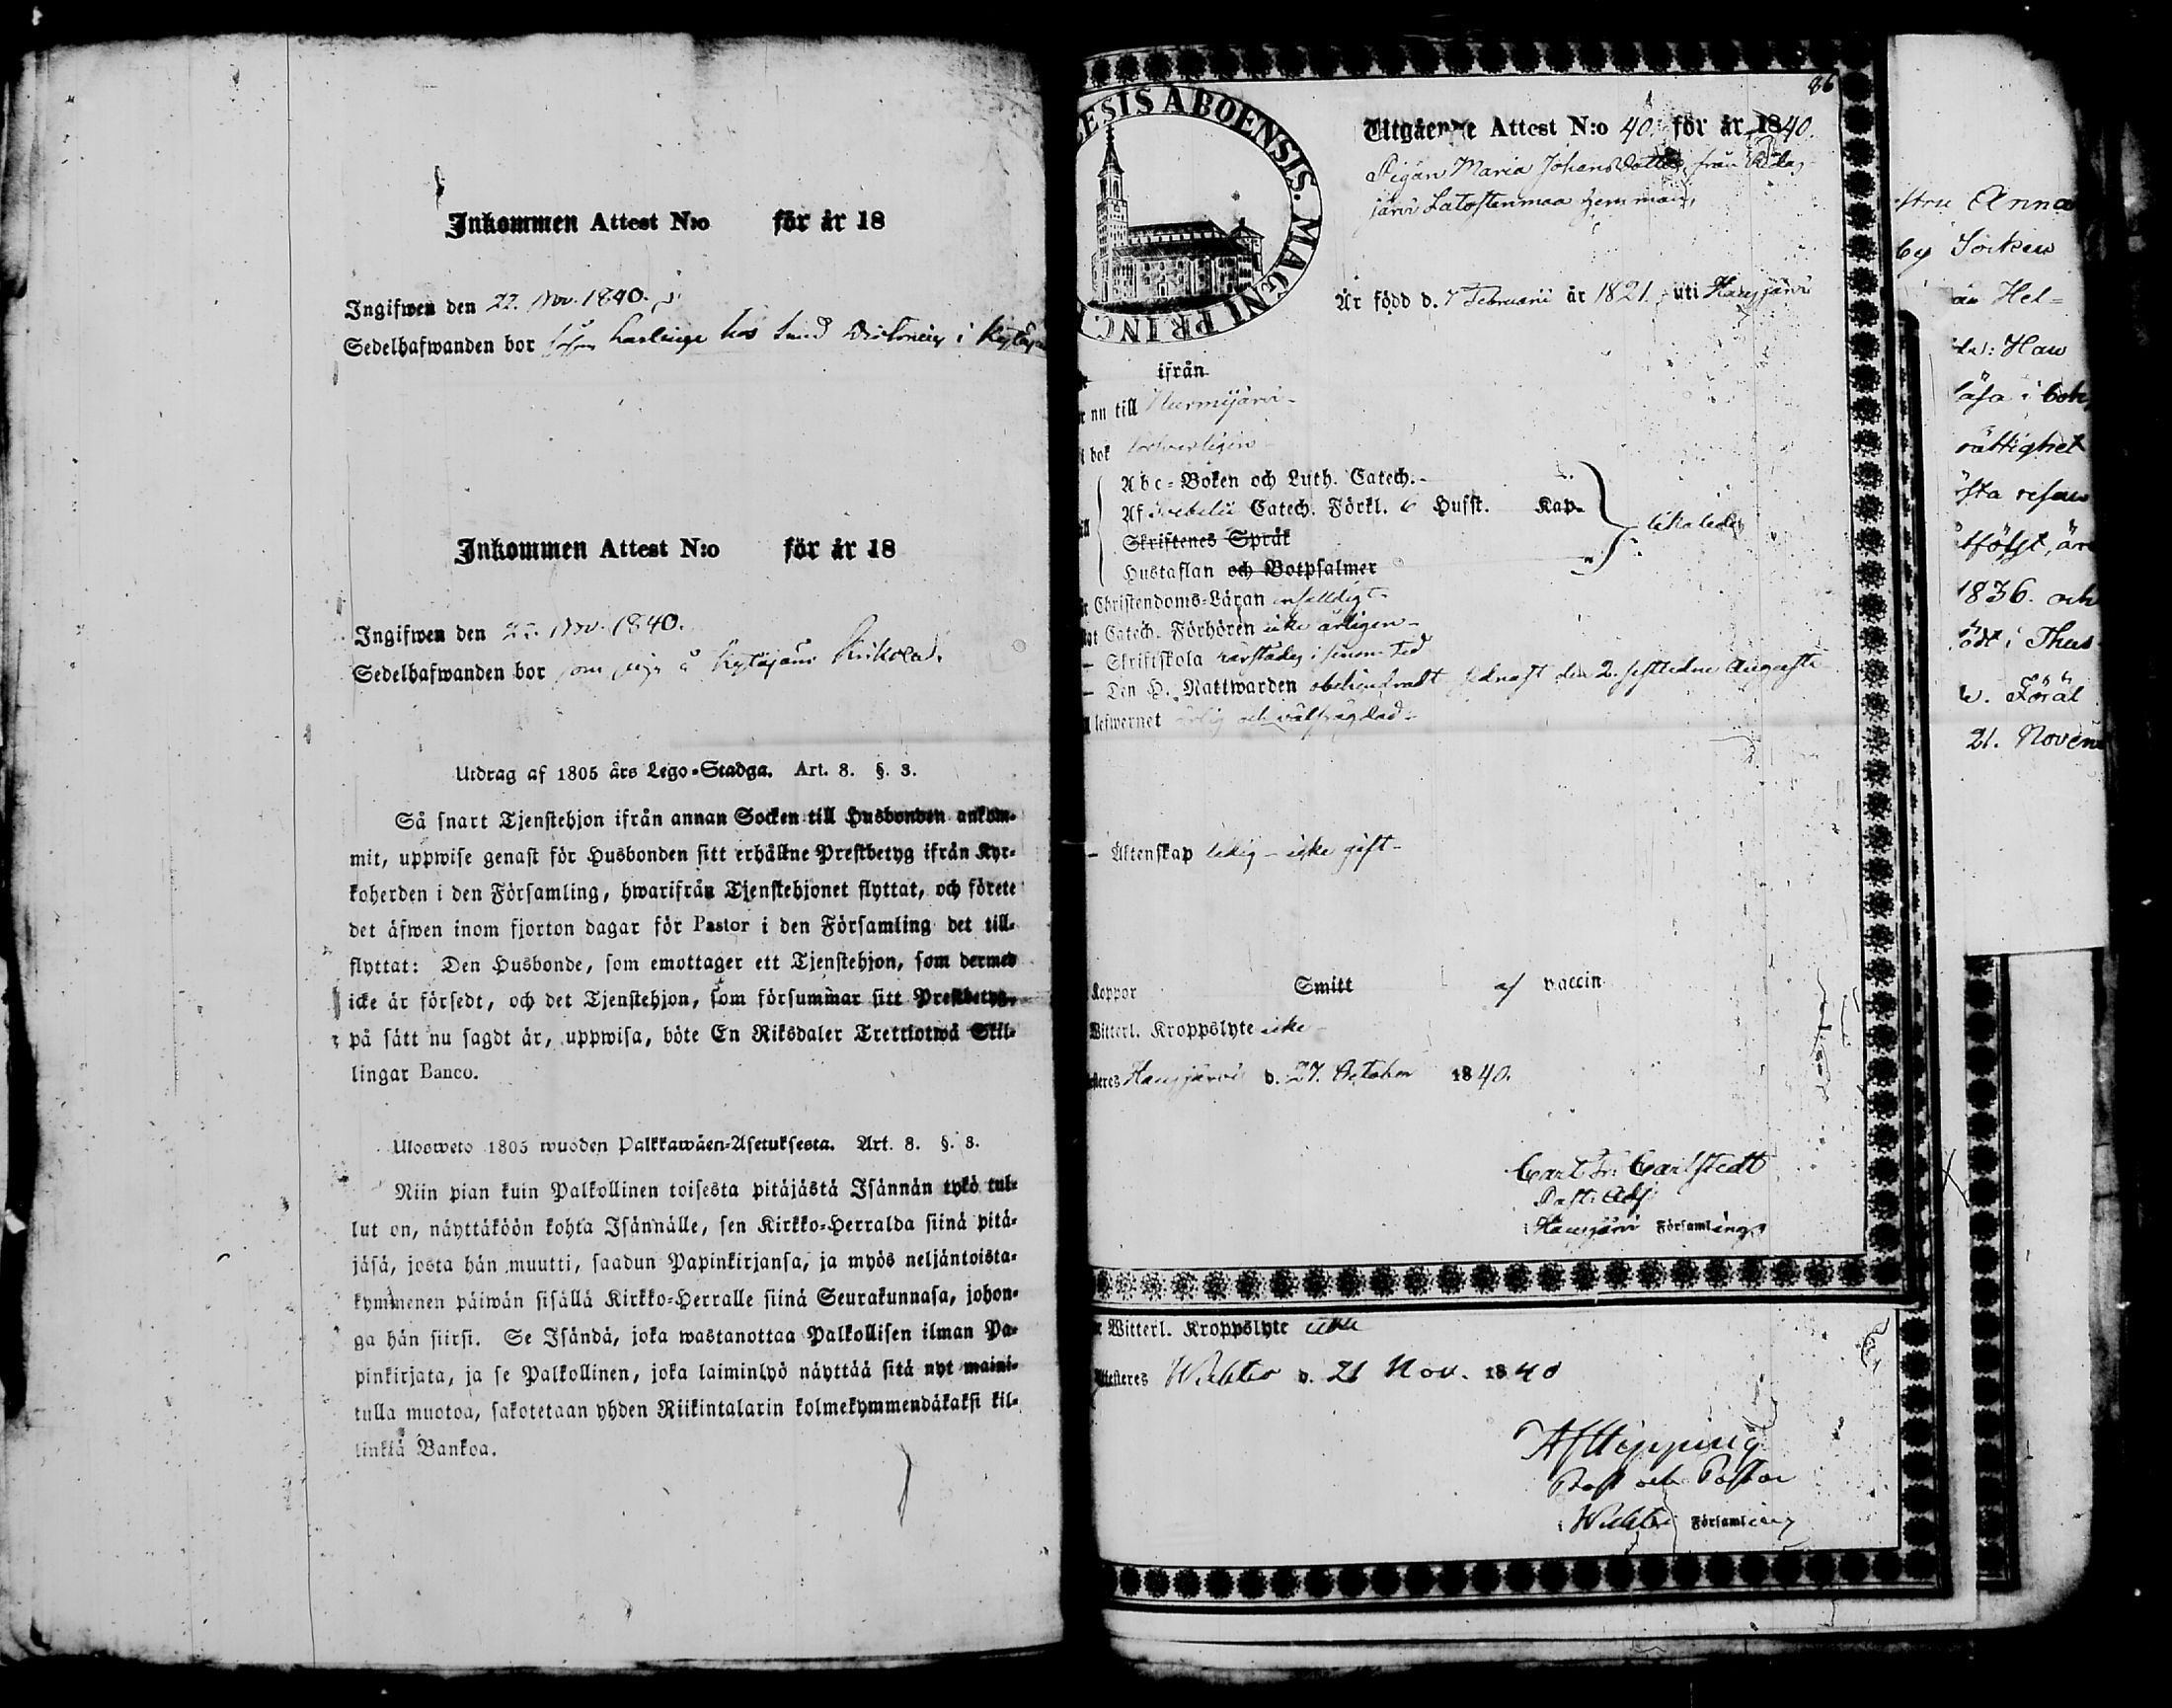 Inkommen Attest N:o för år 18
Ingifwen den 22. Nov. 1840.
Sedelhafwanden bor hos i
Inkommen Attest N:o för år 18
Ingifwen den 22. Nov. 1840.
Sedelhafwanden bor som å
Utdrag af 1805 års Lego-Stadga. Art. 8. §. 3.
Så snart Tjenstehjon ifrån annan Socken till Husbonden ankom-
mit, uppwise genast för Husbonden sitt erhållne Prestbetyg ifrån Kyr-
koherden i den Församling, hwarifrån Tjenstehjonet flyttat, och förete
det äfwen inom fjorton dagar för Pastor i den Församling det till-
flyttat: Den Husbonde, som emottager ett Tjenstehjon, som dermed
icke är försedt, och det Tjenstehjon, som försummar sitt Prestbetyg,
på sätt nu sagdt är, uppwisa, böte En Riksdaler Trettiotwå Skil-
lingar Banco.
Ulosweto 1805 wuoden Palkkawäen-Asetuksesta. Art. 8. §. 3.
Niin pian kuin Palkollinen toisesta pitäjästä Isännän tykö tul-
lut on, näyttäköön kohta Isännälle, sen Kirkko-Herralda siinä pitä-
jäsä, josta hän muutti, saadun Papinkirjansa, ja myös neljäntoista-
kymmenen päiwän sisällä Kirkko-Herralle siinä Seurakunnasa, johon-
ga hän siirsi. Se Isändä, joka wastanottaa Palkollisen ilman Pa-
pinkirjata, ja se Palkollinen, joka laiminlyö näyttää sitä nyt maini-
tulla muotoa, sakotetaan yhden Riikintalarin kolmekymmendäkaksi kil-
linkiä Bankoa.
86
ESIS ABOENSIS. MAGNI PRINC
Utgående Attest N:o 40. för år 1840.
Pigan Maria Johansdotter från
järvi Latostenmaa hemman,
Är född d. 7 Februarii år 1821. uti Hausjärvi
ifrån
nu till Nurmijärvi
bok försvarligen
Abc-Boken och Luth. Catech.
Af Svebelii Catech. Förkl. 6 Husst. Kap.
Skriftenes Språk
likaledes
Hustaflan och Botpsalmer
Christendoms-Läran enfaldigt
Catech. Förhören icke årligen
Skriftskola härstädes i sinom tid
Den H. Nattwarden obehindradt sednast den 2. sistledne Augusti
lefwernet ärlig och välfrägdad
Äktenskap ledig - icke gift
Koppor Smitt af vaccin
Witterl. Kroppslyte icke
Hausjärvi d. 27. October 1840.
Carl Fr. Carlstedt
Past. Adj.
i Hausjärvi Församling
Witterl. Kroppslyte icke
Attesteres Wichtis d. 21 Nov. 1840
Prost och Pastor
i Wichtis Församling
Anna
by Socken
Hel=
läsa i bok
rättighet
resan
1836. och
född i Thus
w. Föräl
21. Novem